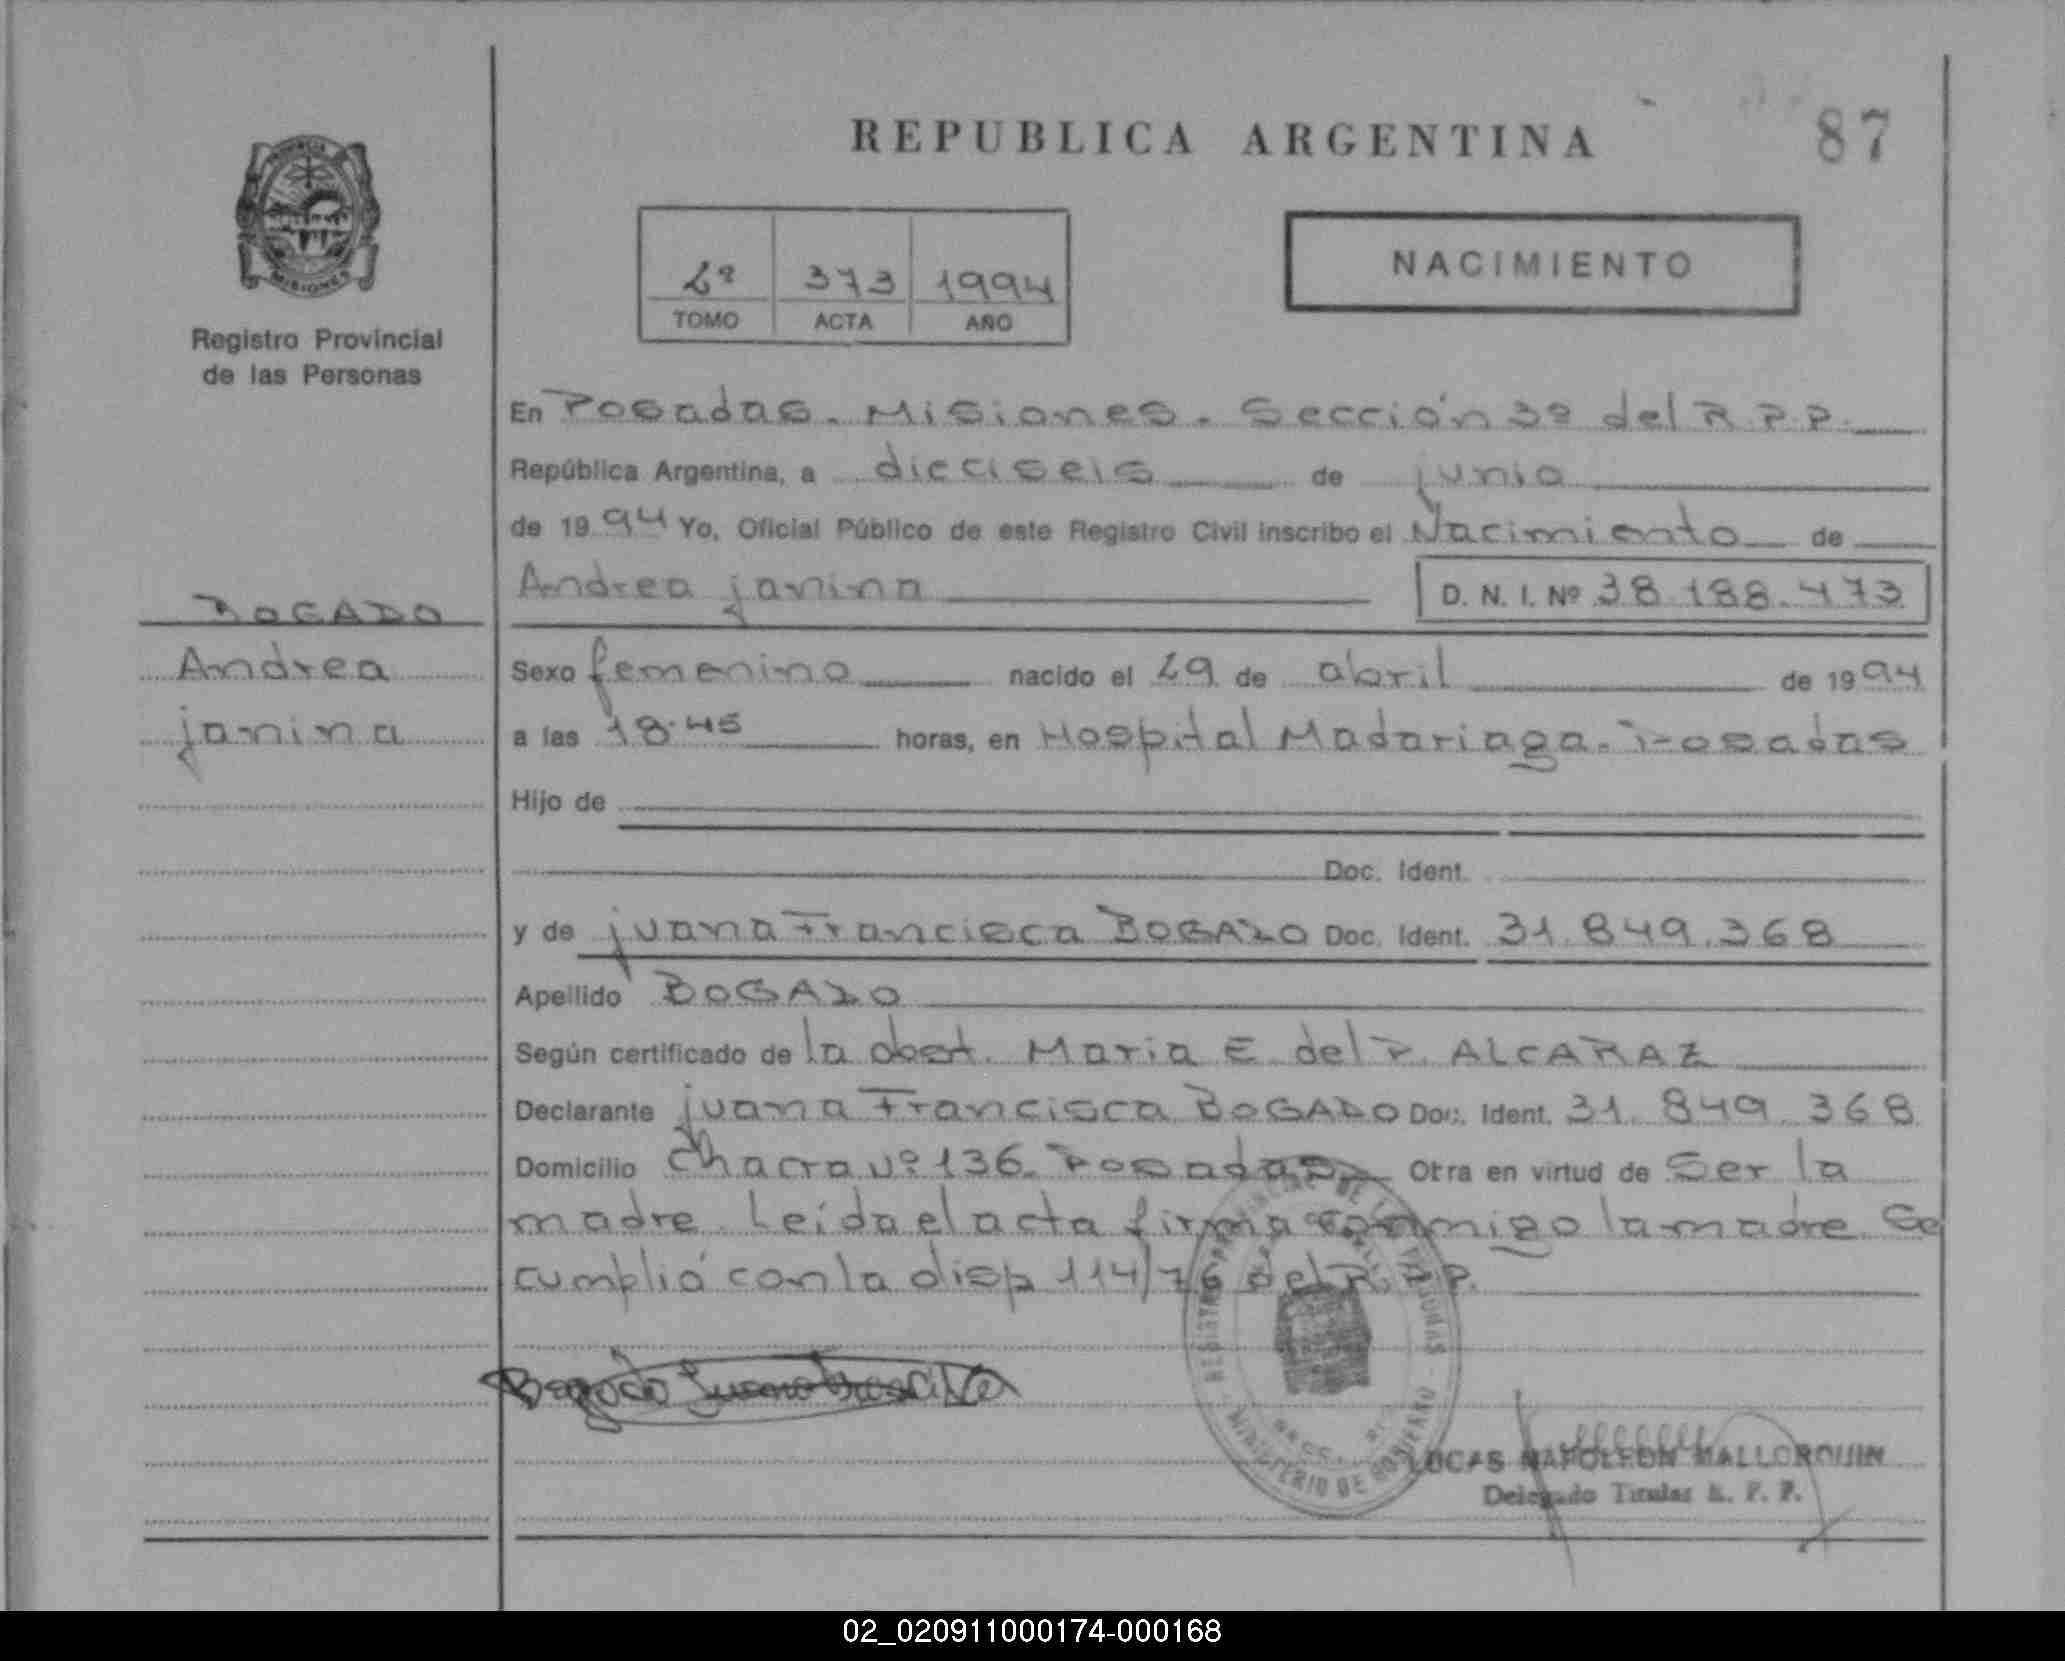 REPUBLICA ARGENTINA
87
2º 373 1994
TOMO ACTA AÑO
NACIMIENTO
MISIONES
Registro Provincial
de las Personas
En Posadas. Misiones. Sección 3º del R.P.P.
República Argentina, a dieciseis de junio
de 1994 Yo, Oficial Público de este Registro Civil inscribo el Nacimiento de
Andrea janina D. N. I. Nº 38.188.473
BOGADO
Andrea
janina
Sexo femenino nacido el 29 de abril de 1994
a las 18.45 horas, en Hospital Madariaga. Posadas
Hijo de
Doc. Ident.
y de juana Francisca BOGADO Doc. Ident. 31.849.368
Apellido BOGADO
Según certificado de la obst. Maria E. del P. ALCARAZ
Declarante juana Francisca BOGADO Doc. Ident. 31.849.368
Domicilio Chacra Nº 136. Posadas Otra en virtud de Ser la
madre. Leída el acta firma conmigo la madre. Se
cumplió con la disp 114/76 del R.P.P.
Bogado Juana Francisca
REGISTRO PROVINCIAL DE LAS PERSONAS
MINISTERIO DE GOBIERNO
LUCAS NAPOLEON MALLORQUIN
Delegado Titular R. P. P.
02_020911000174-000168